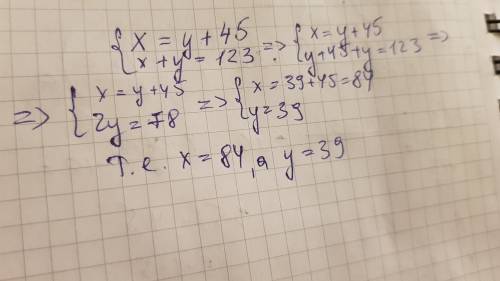 { x = y + 45
x + y = 123 => { x = y + 45
y + 45 + y = 123 =>
=> { x = y + 45
2y = 78 => { x = 39 + 45 = 84
y = 39
т.е. x = 84, а y = 39